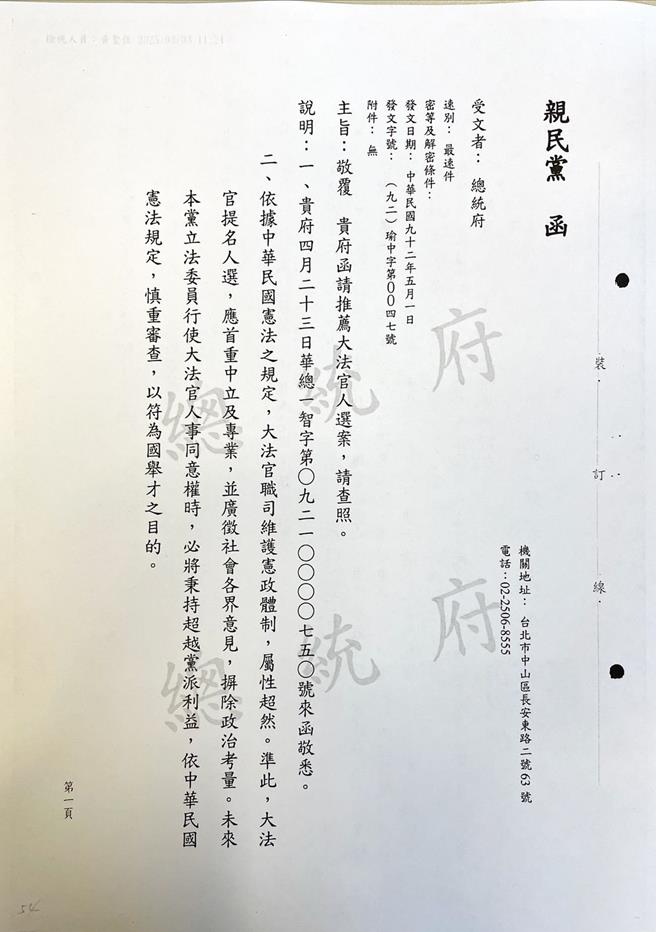 親民黨　函
機關地址：台北市中山區長安東路二號63號
電話：02-2506-8555
受文者：總統府
速別：最速件
密等及解密條件：
發文日期：中華民國九十二年五月一日
發文字號：（九二）瑜中字第00四七號
附件：無
主旨：敬覆　貴府函請推薦大法官人選案，請查照。
說明：一、貴府四月二十三日華總一智字第○九二一○○○○七五○號來函敬悉。
二、依據中華民國憲法之規定，大法官職司維護憲政體制，屬性超然。準此，大法
官提名人選，應首重中立及專業，並廣徵社會各界意見，摒除政治考量。未來
本黨立法委員行使大法官人事同意權時，必將秉持超越黨派利益，依中華民國
憲法規定，慎重審查，以符為國舉才之目的。
第一頁
裝訂線
總統府
總統府
54